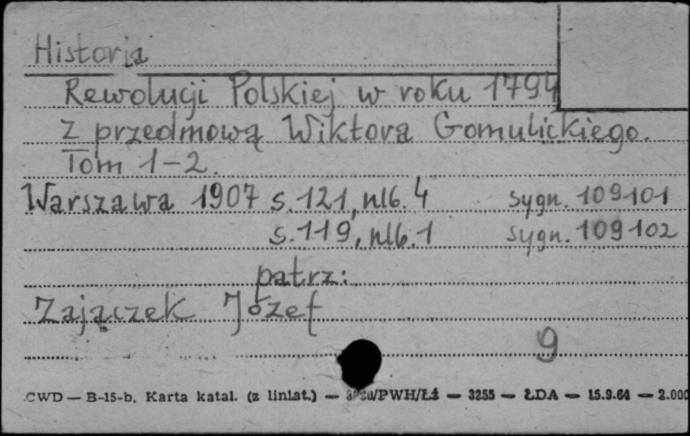 Historja
Rewolucji Polskiej w roku 1794
z przedmową Wiktora Gomulickiego.
Tom 1-2.
Warszawa 1907 s.121, nlb. 4 sygn. 109101
s.119, nlb. 1 sygn. 109102
patrz:
Zajączek Józef
9
CWD — B-15-b. Karta katal. (z liniat.) — /PWH/Łź — 3255 — ŁDA — 15.9.64 — 2.000